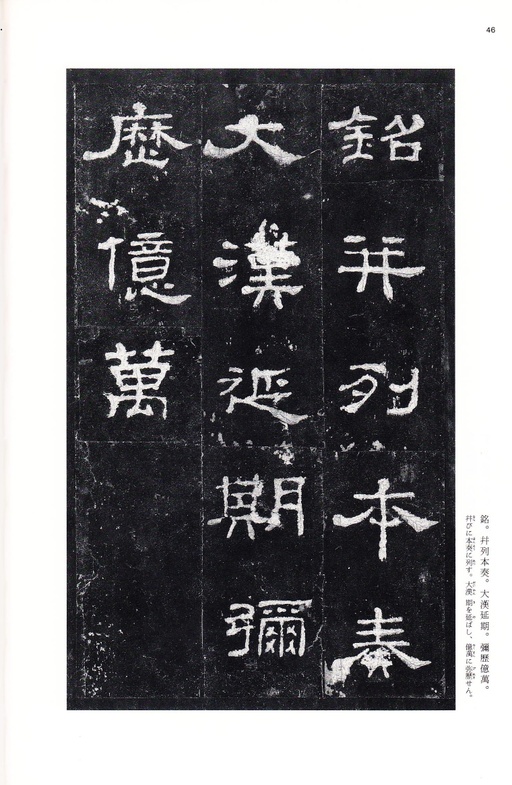 46
銘并列本奏
大漢延期彌
歷億萬
銘。幷列本奏。大漢延期。彌歷億萬。
幷びに本奏に列す。大漢 期を延ばし、億萬に弥歷せん。